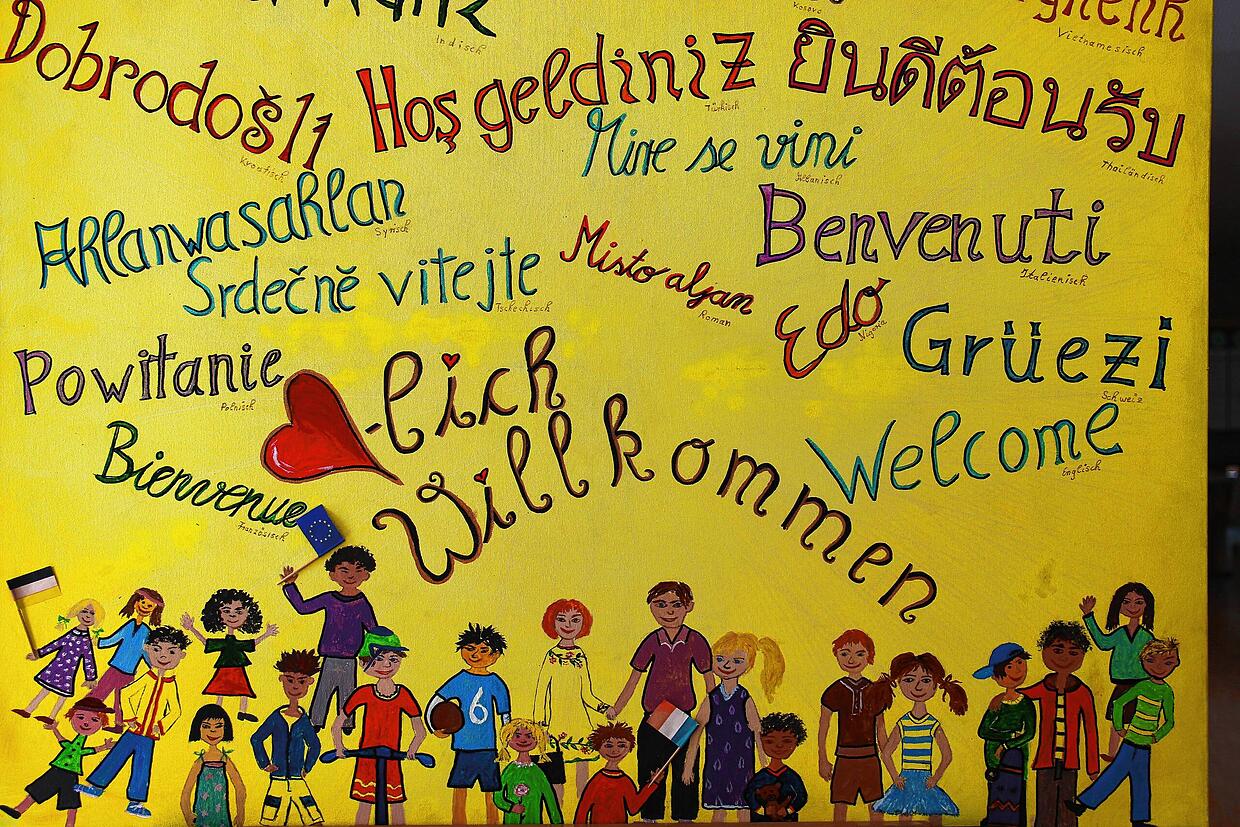 Indisch
Kosovo
Vietnamesisch
Dobrodošli
Kroatisch
Hoş geldiniz
Türkisch
ยินดีต้อนรับ
Thailändisch
Mire se vini
Albanisch
Ahlanwasahlan
Syrisch
Benvenuti
Italienisch
Srdečně vitejte
Tschechisch
Misto aljan
Roman
Edó
Nigeria
Grüezi
Schweiz
Powitanie
Polnisch
-lich
Willkommen
Welcome
Englisch
Bienvenue
Französisch
6